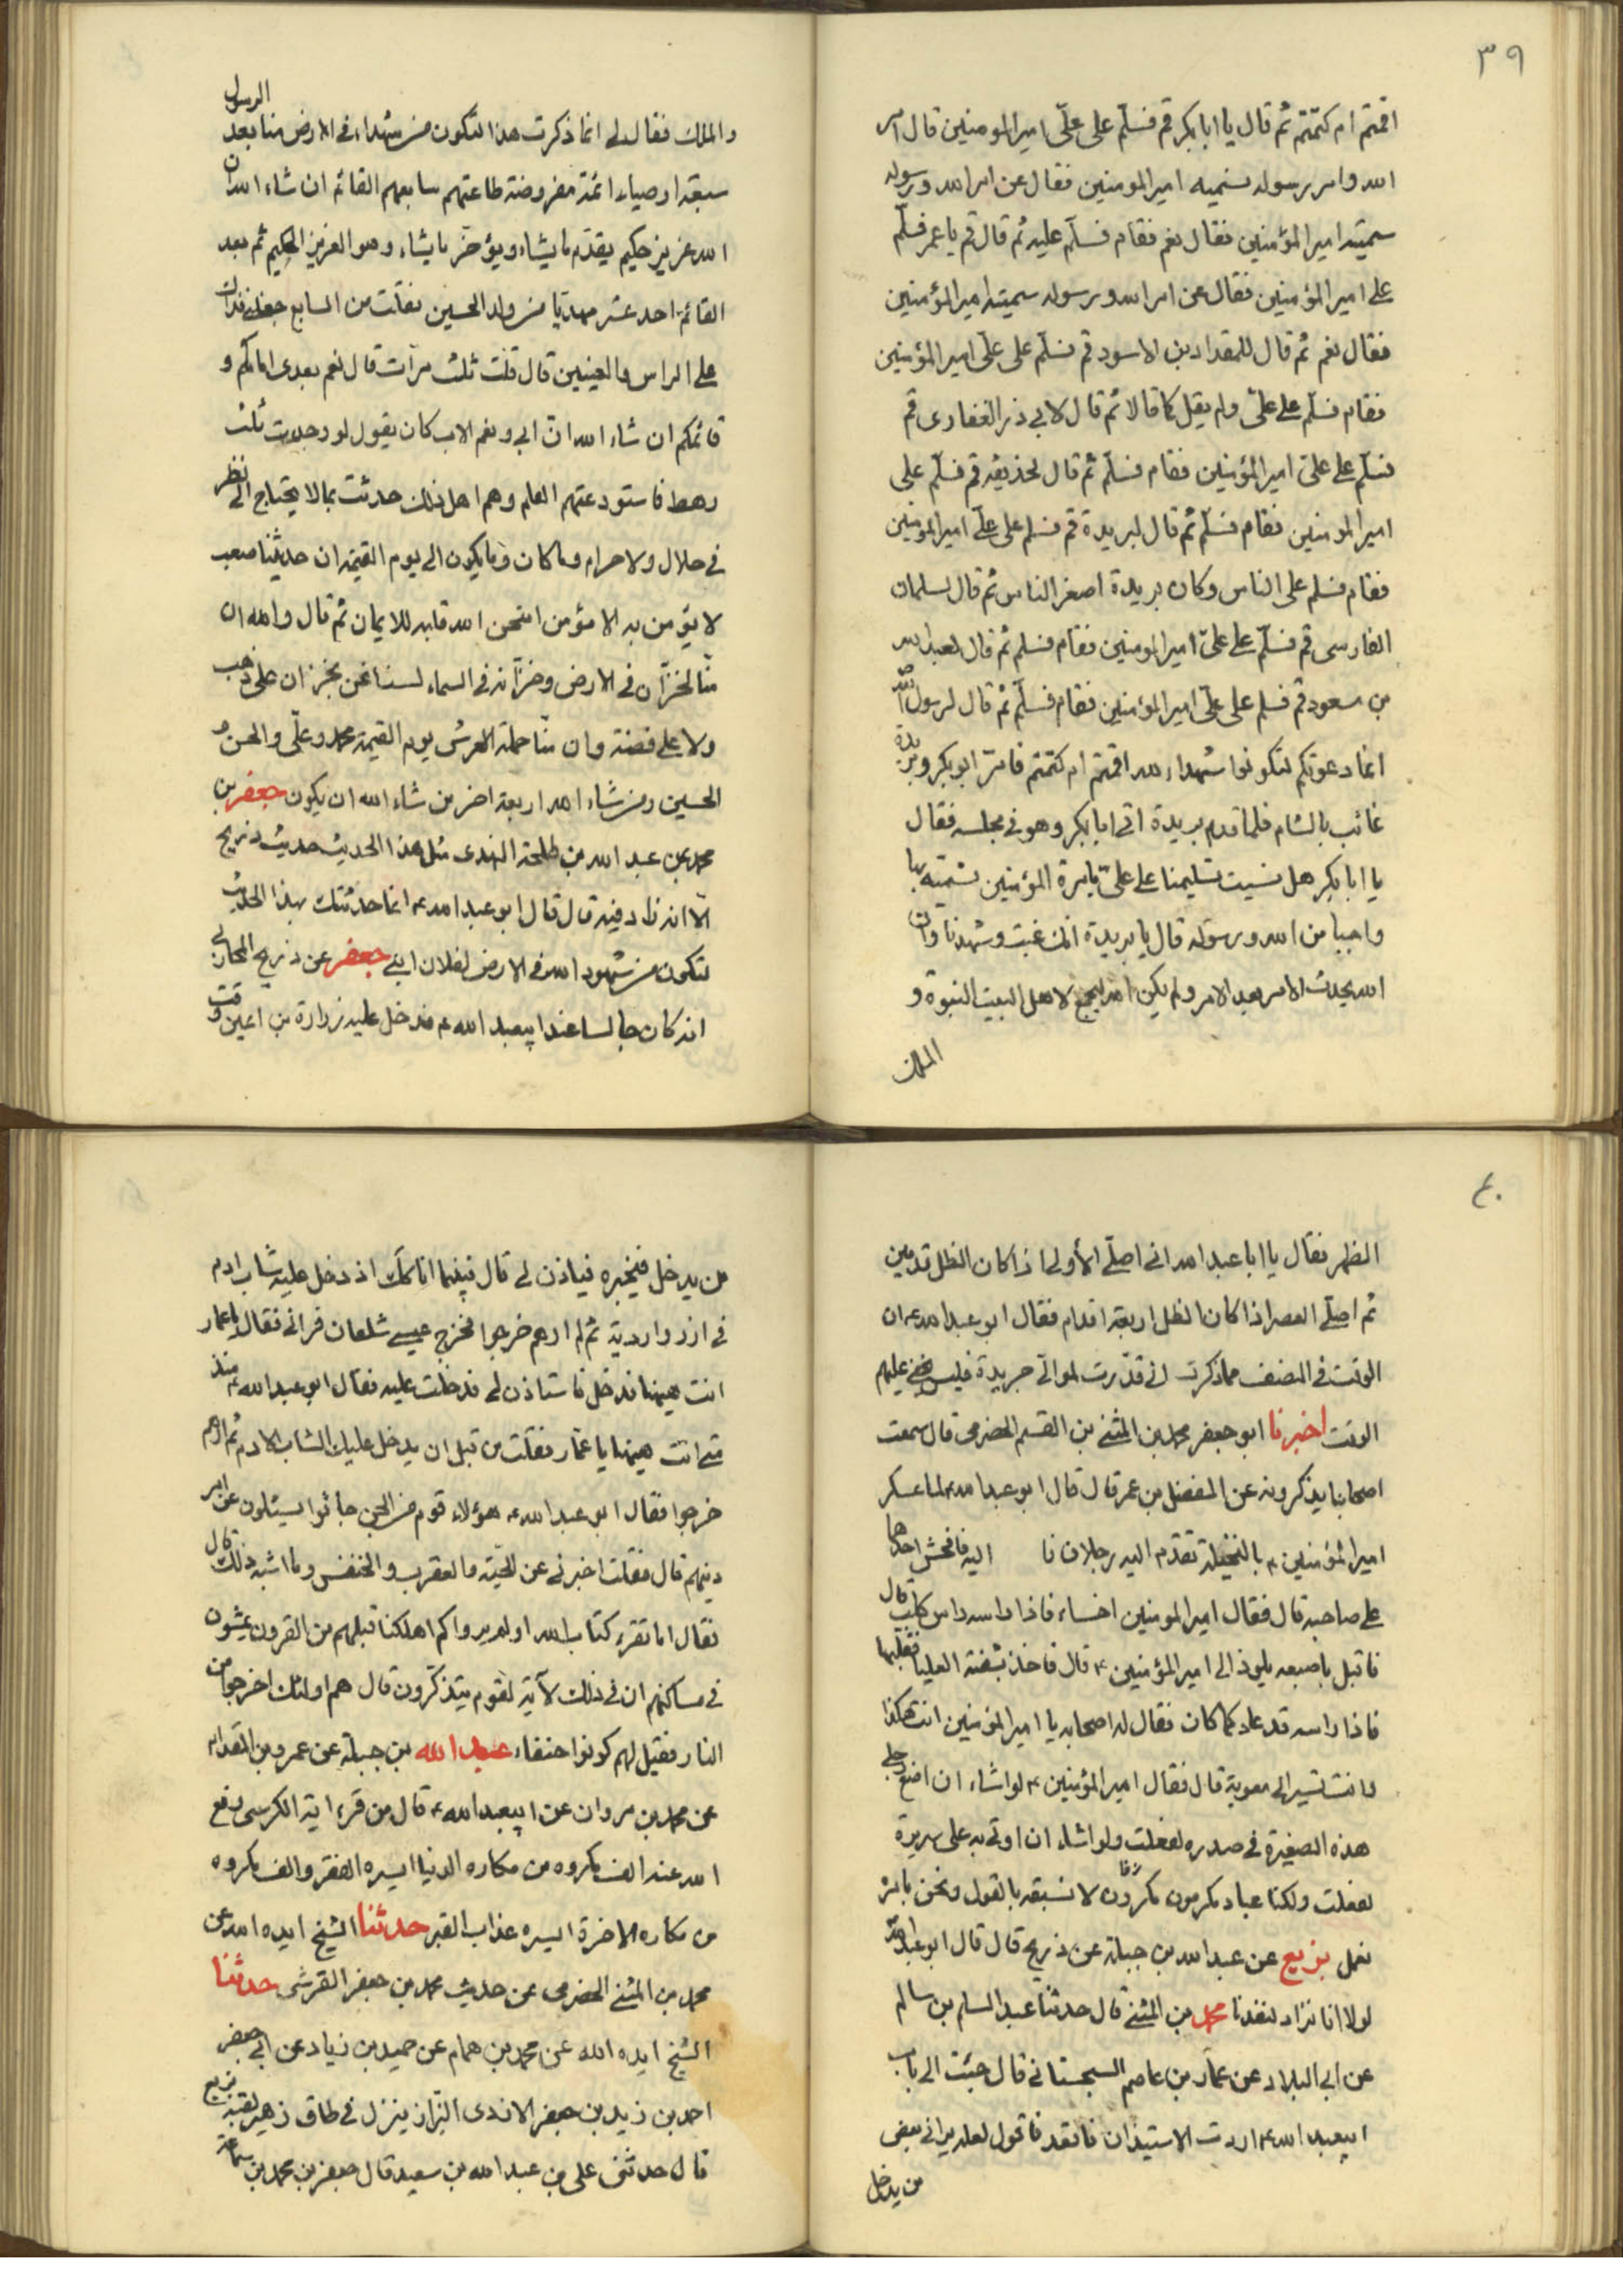 ٣٩
اقمتم ام كتمتم ثم قال يا ابا بكر قم فسلّم على علىّ امير المومنين قال امر
الله وامر رسوله نسميه امير المومنين فقال عن امر الله ورسوله
سميته امير المؤمنين فقال نعم فقام فسلّم عليه ثم قال قم يا عمر فسلّم
على امير المؤمنين فقال عن امر الله ورسوله سميته امير المؤمنين
فقال نعم ثم قال للمقداد بن الاسود قم فسلّم على علىّ امير المؤمنين
فقام فسلّم على علىّ ولم يقل كما قالا ثم قال لابي ذر الغفارى قم
فسلّم على علىّ امير المؤمنين فقام فسلّم ثم قال لحذيفه قم فسلّم على
امير المومنين فقام فسلّم ثم قال لبريدة قم فسلم على علىّ امير المومنين
فقام فسلم على الناس وكان بريدة اصغر الناس ثم قال لسلمان
الفارسى قم فسلّم على علىّ امير المومنين فقام فسلم ثم قال لعبد الله
بن مسعود قم فسلم على علىّ امير المؤمنين فقام فسلّم ثم قال لرسول الله
انما دعوتكم لتكونوا شهداء لله اقمتم ام كتمتم فامّر ابو بكر وبريدة
غائب بالشام فلما قدم بريدة اتى ابا بكر وهو في مجلسه فقال
يا ابا بكر هل نسيت تسليمنا على علىّ بامرة المؤمنين نسميّه بها
واجبا من الله ورسوله قال يا بريدة انك غبت وشهدنا وان
الله يحدث الامر بعد الامر ولم يكن الله ليجمع لاهل البيت النبوة و
الملك
والملك فقال لي انما ذكرت هذا لتكون من شهداء في الارض منا بعد الرسول
سبعة اوصياء ائمة مفروضة طاعتهم سابعهم القائم ان شاء الله ان
الله عزيز حكيم يقدّم ما يشاء ويؤخّر ما يشاء وهو العزيز الحكيم ثم بعد
القائم احد عشر مهديّا من ولد الحسين فقلت من السابع جعلني فداك
على الراس والعينين قال قلت ثلث مرّات قال نعم بعدى امامكم و
قائمكم ان شاء الله انّ ابى ونعم الاب كان يقول لو وجدت ثلث
رهط فاستودعتهم العلم وهم اهل ذلك حدثت بما لا يحتاج الى نظر
في حلال ولا حرام وما كان وما يكون الى يوم القيمة ان حديثنا صعب
لا يؤمن به الا مؤمن امتحن الله قلبه للايمان ثم قال والله ان
منّا لخزّان في الارض وخزّانه في السماء لسنا نحن بخزان على ذهب
ولا على فضة وان منّا حملة العرش يوم القيمة محمد وعلّى والحسن و
الحسين ومن شاء الله اربعة اخر من شاء الله ان يكون جعفر بن
محمد عن عبد الله بن طلحة النهدى مثل هذا الحديث حديث ذريح
الّا انه زاد فيه قال قال ابو عبد الله ء انما حدثتك بهذا الحديث
لتكون من شهود الله في الارض لفلان ابنى جعفر عن ذريح المحاربى
انه كان جالسا عند ابيعبد الله ء فدخل عليه زرارة بن اعين وقت
٤٠
الظهر فقال يا ابا عبد الله اني اصلّي الأولى اذا كان الظل قدمين
ثم اصلّي العصر اذا كان الظل اربعة اقدام فقال ابو عبد الله ء ان
الوقت في النصف مما ذكرت اني قدّرت لموالّي جريدة فليس يخفى عليهم
الوقت اخبرنا ابو جعفر محمد بن المثنى بن القسم الحضرمى قال سمعت
اصحابنا يذكرونه عن المفضل بن عمر قال قال ابو عبد الله ء لما عسكر
امير المؤمنين ء بالنخيلة تقدم اليه رجلان فا اليه فافحش احدهما
على صاحبه قال فقال امير المومنين اخساء فاذا راسه راس كلب قال
فاقبل باصبعه يلوذ الى امير المؤمنين ء قال فاخذ بشفته العليا فقلبها
فاذا راسه قد عاد كما كان فقال له اصحابه يا امير المؤمنين انت هكذا
وانت تسير الى معوية قال فقال امير المؤمنين ء لو اشاء ان اضع رجلى
هذه الصغيرة في صدره لفعلت ولو اشاء ان اوتى به على سريره
لفعلت ولكنا عباد مكرمون لا نسبقه بالقول ونحن بامره
نعمل بزيع عن عبد الله بن جبلة عن ذريح قال قال ابو عبد الله
لولا انا نزاد لنفدنا محمد بن المثنى قال حدثنا عبد السلم بن سالم
عن ابي البلاد عن عمار بن عاصم السجستاني قال جئت الى باب
ابيعبد الله ء اردت الاستيذان فاقعد فاقول لعله يراني بعض
من يدخل
من يدخل فيخبره فياذن لي قال فبينما انا كذلك اذ دخل عليه شاب ادم
في ازر واردية ثم لم ارهم خرجوا فخرج عيسى شلقان فراني فقال يا عمار
انت هيهنا فدخل فاستاذن لي فدخلت عليه فقال ابو عبد الله ء منذ
متى انت هيهنا يا عمّار فقلت من قبل ان يدخل عليك الشاب الادم ثم لم ارهم
خرجوا فقال ابو عبد الله ء هؤلاء قوم من الجن جائوا يسئلون عن امر
دينهم قال فقلت اخبرني عن الحيّة والعقرب والخنفس وما اشبه ذلك قال
فقال اما تقرء كتاب الله اولم يروا كم اهلكنا قبلهم من القرون يمشون
في مساكنهم ان في ذلك لآية لقوم يتذكّرون قال هم اولئك اخرجوا من
النار فقيل لهم كونوا حنفاء عبد الله بن جبلة عن عمرو بن المقدام
عن محمد بن مروان عن ابيعبد الله ء قال من قرء اية الكرسى دفع
الله عنه الف مكروه من مكاره الدنيا ايسره الفقر والف مكروه
من مكاره الاخرة ايسره عذاب القبر حدثنا الشيخ ايده الله عن
محمد بن المثنى الحضرمى عن حديث محمد بن جعفر القرشى حدثنا
الشيخ ايده الله عن محمد بن همام عن حميد بن زياد عن ابي جعفر
احمد بن زيد بن جعفر الازدى البزاز ينزل في طاق زهير لقبه بزيع
قال حدثنى على بن عبد الله بن سعيد قال جعفر بن محمد بن سماعة